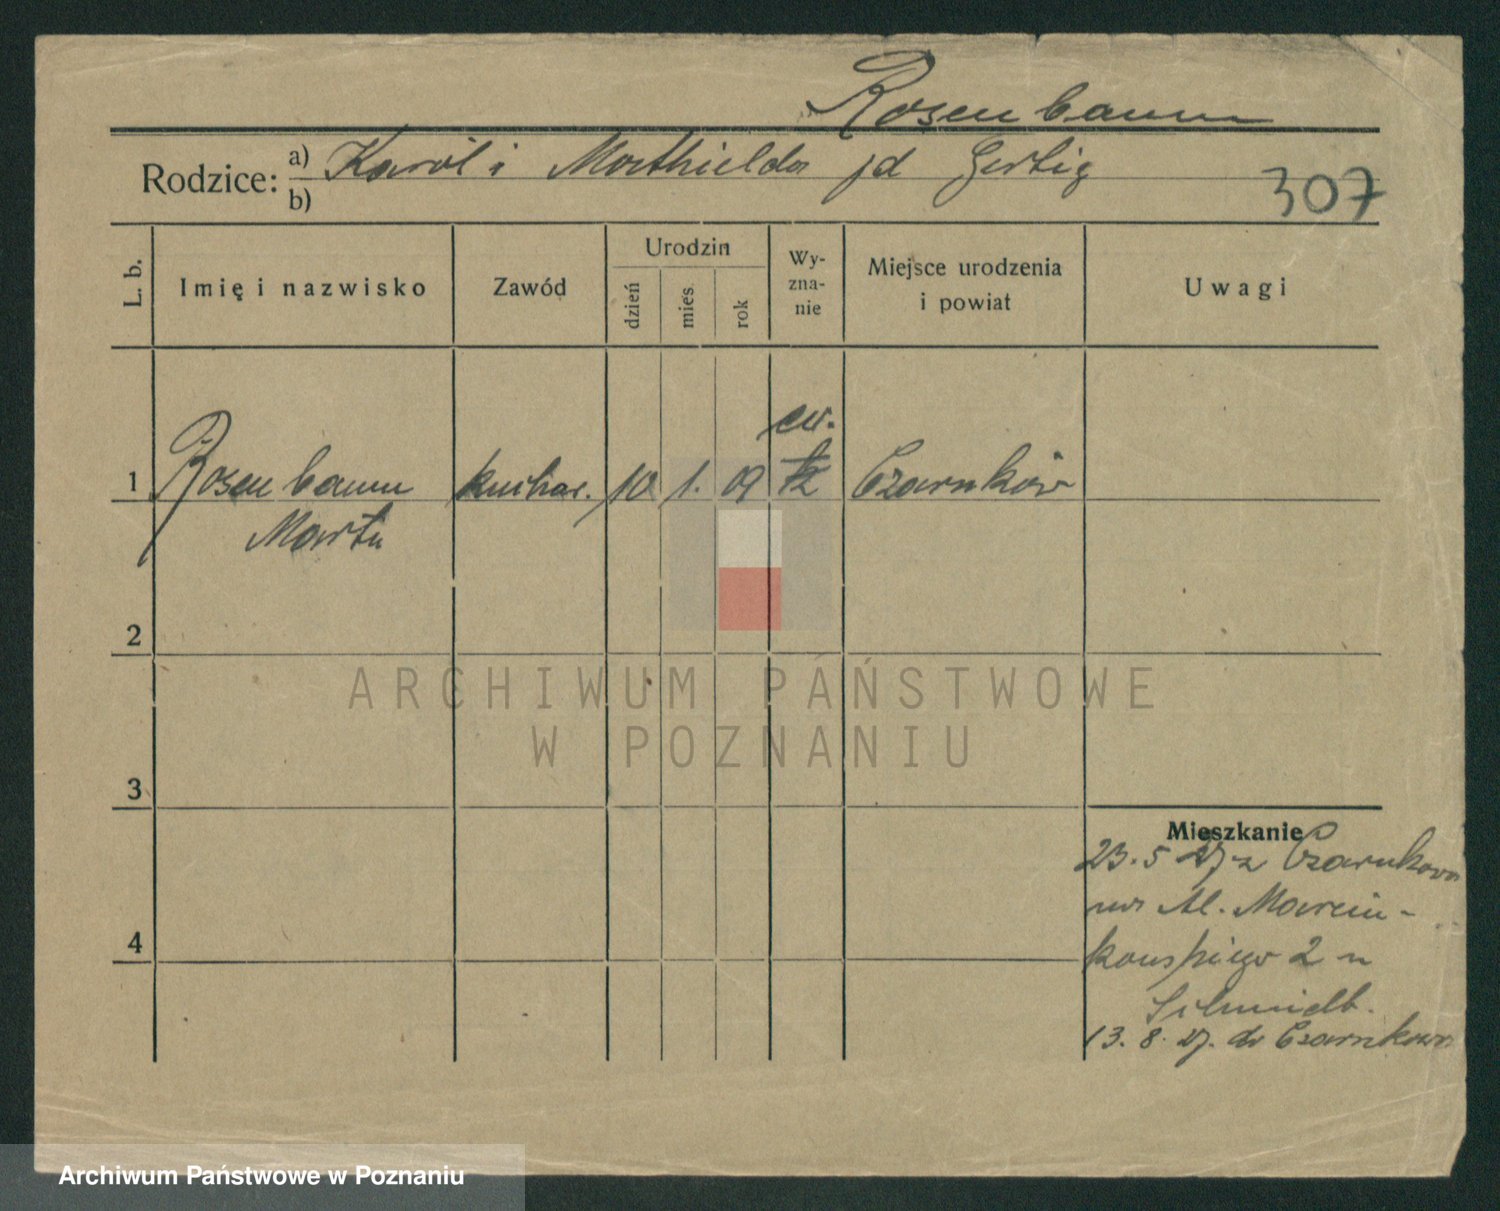 Rosenbaum
Rodzice: a) Karol i Mathielda jd Gertig
b)
307
L. b. Imię i nazwisko Zawód Urodzin dzień mies rok Wy-zna-nie Miejsce urodzenia i powiat Uwagi
ew.
1 Rosenbaum kuchar. 10 1. 09 Czarnków
Marta
2
3
4
Mieszkanie
23.5 27 z Czarnkowa
na Al. Marcin-
kowskiego 2 u
Schmidt.
13.8.27. do Czarnkowa
ARCHIWUM PAŃSTWOWE
W POZNANIU
Archiwum Państwowe w Poznaniu